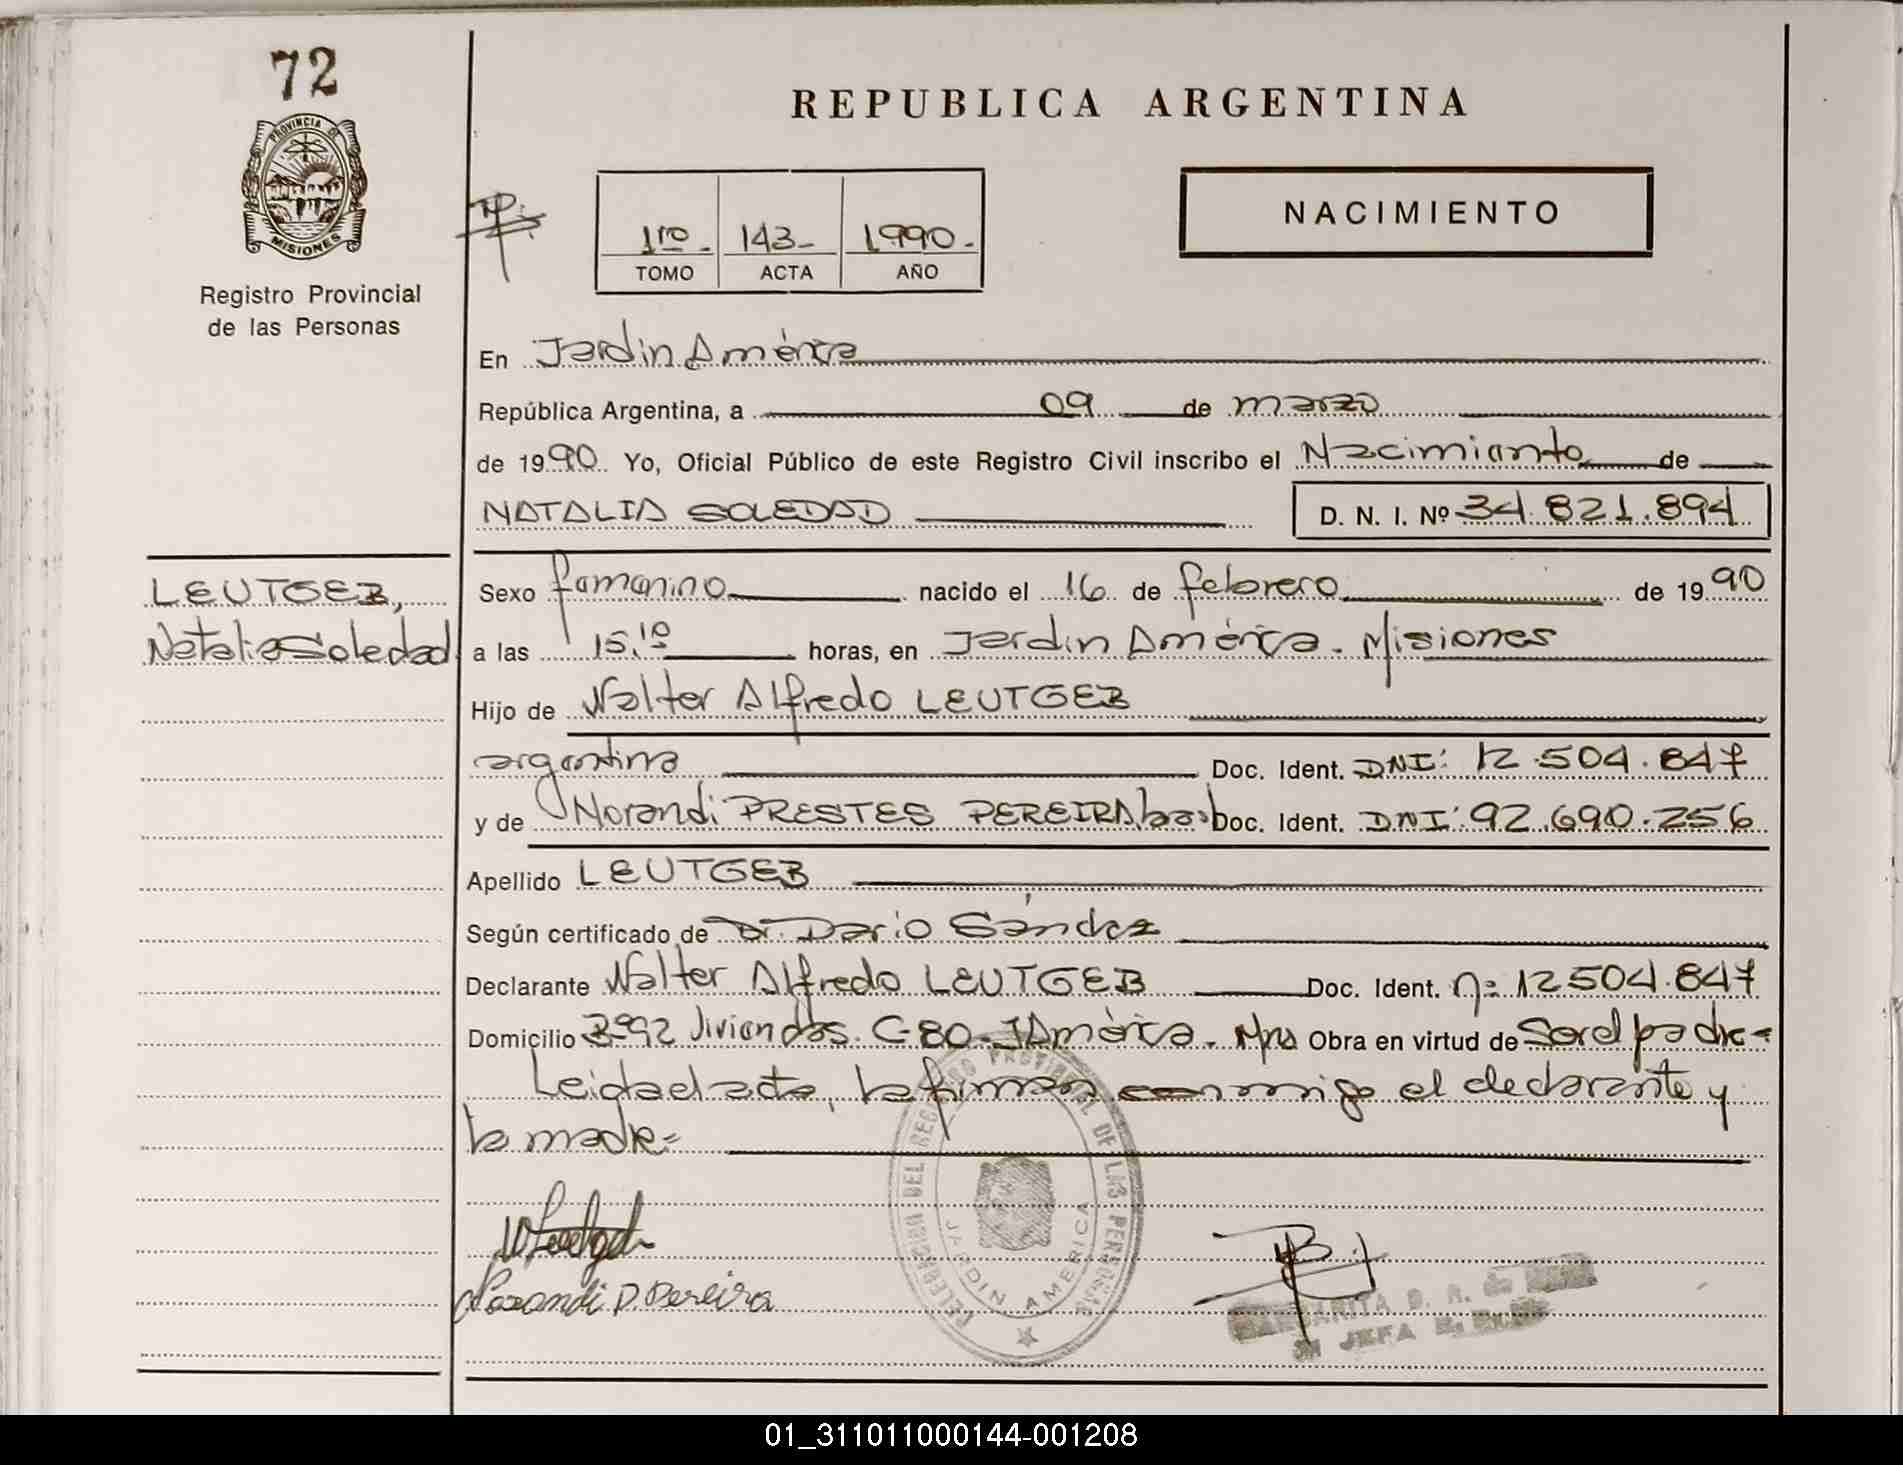 72
PROVINCIA DE
MISIONES
Registro Provincial
de las Personas
REPUBLICA ARGENTINA
1ro - 143 - 1990 -
TOMO ACTA AÑO
NACIMIENTO
En Jardin América
República Argentina, a 09 de marzo
de 1990 Yo, Oficial Público de este Registro Civil inscribo el Nacimiento de
NATALIA SOLEDAD D. N. I. Nº 34.821.894
LEUTGEB,
Natalia Soledad
Sexo femenino nacido el 16 de febrero de 1990
a las 15,10 horas, en Jardin América - Misiones
Hijo de Walter Alfredo LEUTGEB
argentina Doc. Ident. DNI: 12.504.847
y de Norandi PRESTES PEREIRA, Doc. Ident. DNI: 92.690.256
Apellido LEUTGEB
Según certificado de Dr. Dario Sández
Declarante Walter Alfredo LEUTGEB Doc. Ident. nº 12504.847
Domicilio Bº 92 Viviendas. C-80 - J América - Mnes Obra en virtud de Ser el padre =
Leida el acta, la firman conmigo el declarante y
la madre =
Norandi P. Pereira
DELEGACION DEL REGISTRO PROVINCIAL DE LAS PERSONAS
JARDIN AMERICA
MARGARITA B. R. de
JEFA
01_311011000144-001208